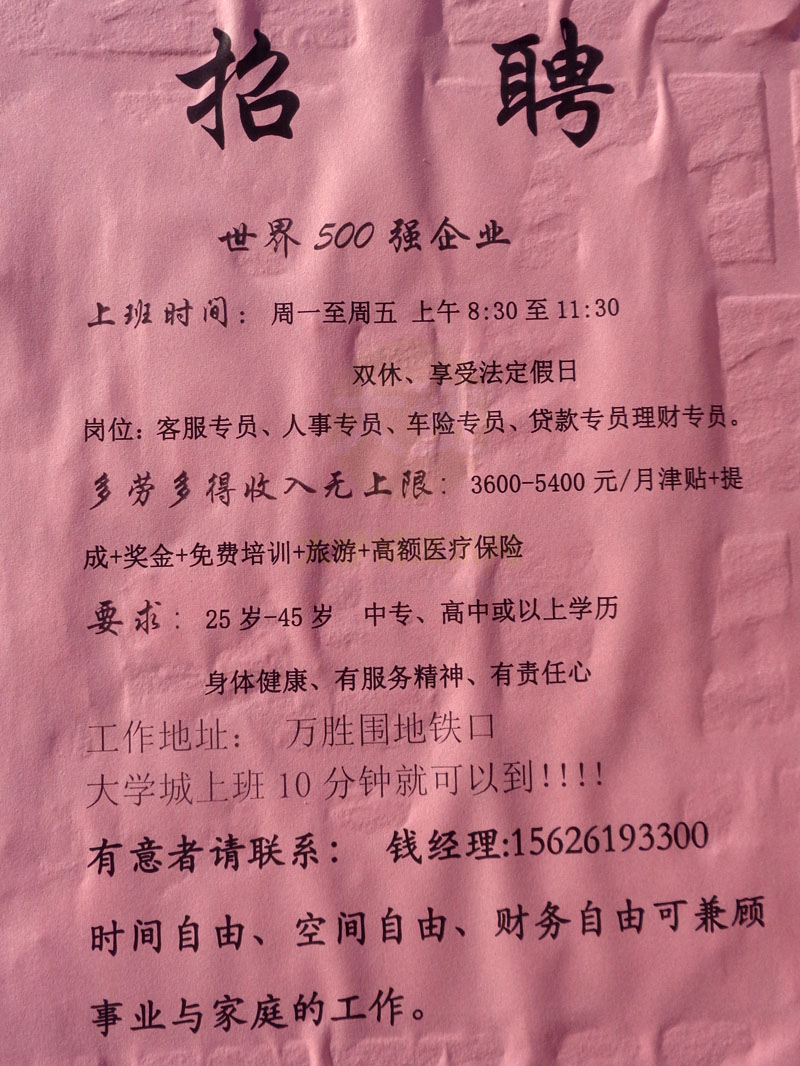 招 聘
世界 500 强企业
上班时间: 周一至周五 上午 8:30 至 11:30
双休、享受法定假日
岗位: 客服专员、人事专员、车险专员、贷款专员理财专员。
多劳多得收入无上限: 3600-5400 元/月津贴+提
成+奖金+免费培训+旅游+高额医疗保险
要求: 25 岁-45 岁 中专、高中或以上学历
身体健康、有服务精神、有责任心
工作地址: 万胜围地铁口
大学城上班 10 分钟就可以到!!!!
有意者请联系: 钱经理:15626193300
时间自由、空间自由、财务自由可兼顾
事业与家庭的工作。